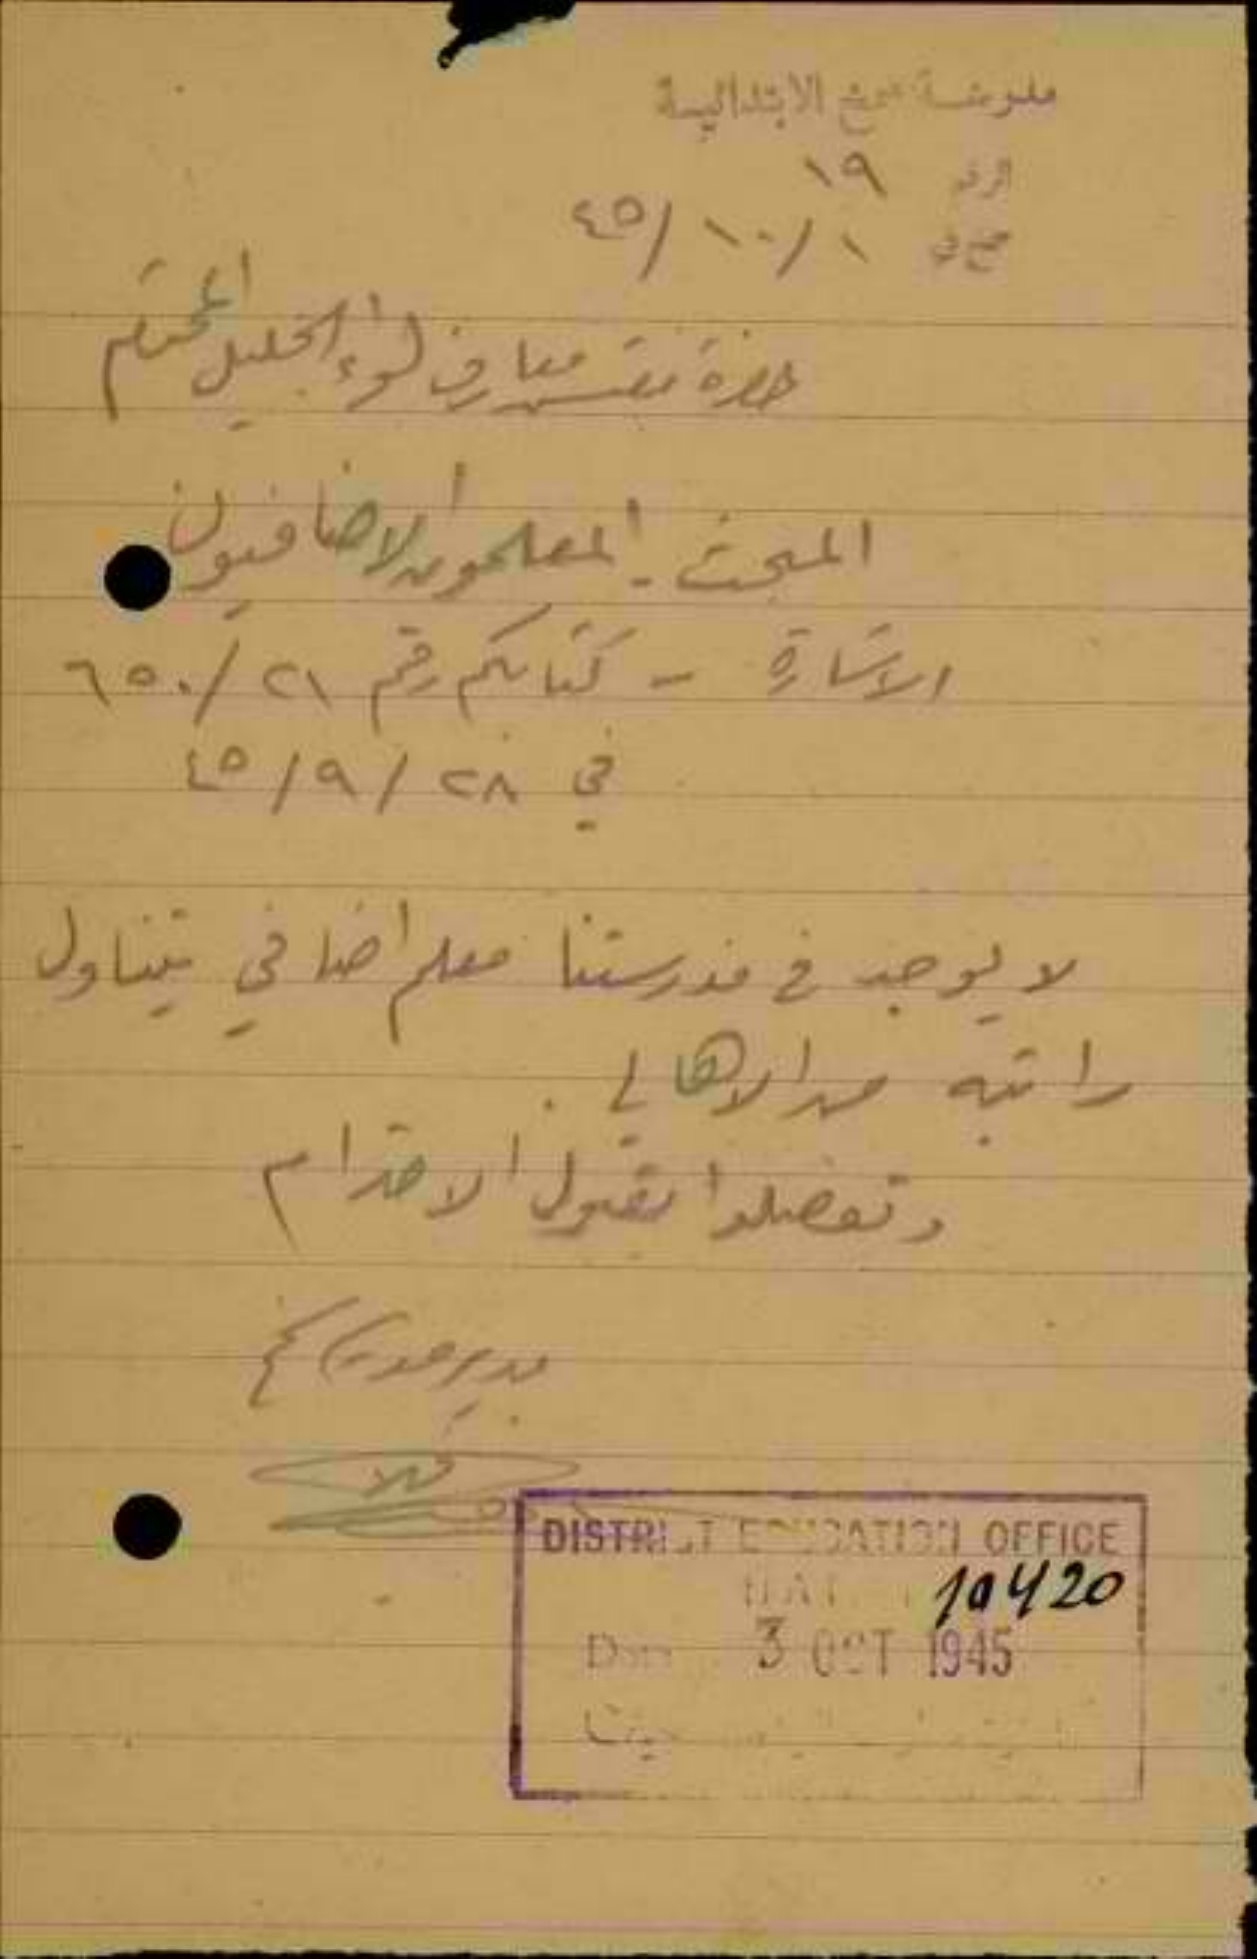 مدرسة سمخ الابتدائية
الرقم ١٩
سمخ في ١/١٠/٤٥
حضرة مفتش معارف لواء الجليل المحترم
المبحث - المعلمون الاضافيون
الاشارة - كتابكم رقم ٢١/٦٥٠
في ٢٨/٩/٤٥
لا يوجد في مدرستنا معلم اضافي يتناول
راتبه من الاهالي.
وتفضلوا بقبول الاحترام
مدير مدرسة سمخ
DISTRICT EDUCATION OFFICE
10420
Date 3 OCT 1945